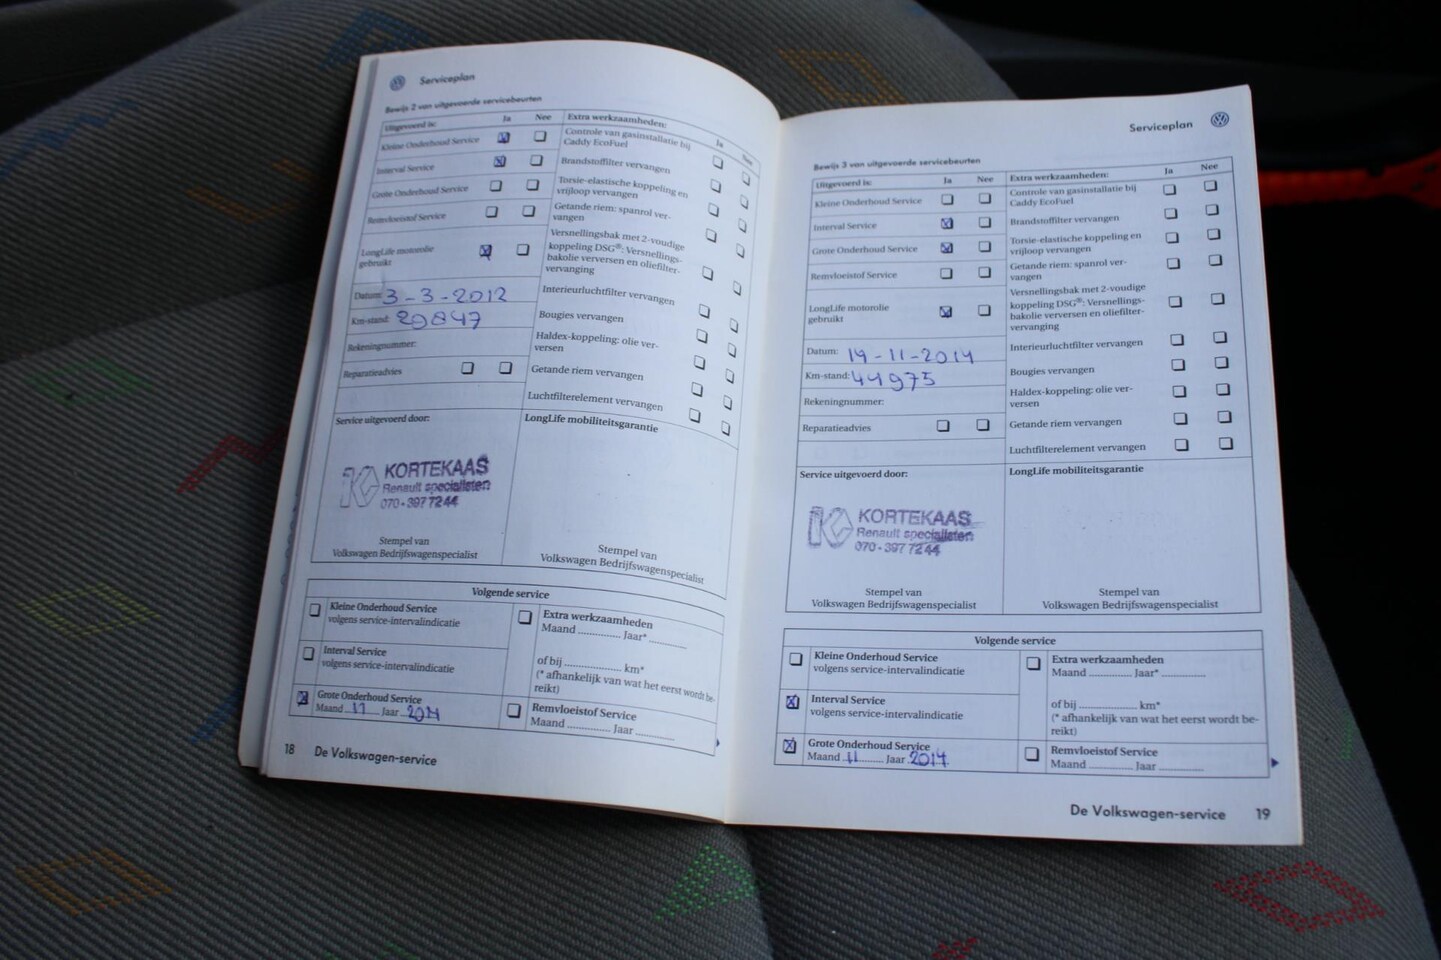 Serviceplan
Bewijs 2 van uitgevoerde servicebeurten
Uitgevoerd is: Ja Nee
Kleine Onderhoud Service
Interval Service
Grote Onderhoud Service
Remvloeistof Service
LongLife motorolie
gebruikt
Datum: 3-3-2012
Km-stand: 20847
Rekeningnummer:
Reparatieadvies
Extra werkzaamheden: Ja Nee
Controle van gasinstallatie bij
Caddy EcoFuel
Brandstoffilter vervangen
Torsie-elastische koppeling en
vrijloop vervangen
Getande riem: spanrol ver-
vangen
Versnellingsbak met 2-voudige
koppeling DSG®: Versnellings-
bakolie verversen en oliefilter-
vervanging
Interieurluchtfilter vervangen
Bougies vervangen
Haldex-koppeling: olie ver-
versen
Getande riem vervangen
Luchtfilterelement vervangen
Service uitgevoerd door:
KORTEKAAS
Renault specialisten
070-397 72 44
Stempel van
Volkswagen Bedrijfswagenspecialist
LongLife mobiliteitsgarantie
Stempel van
Volkswagen Bedrijfswagenspecialist
Volgende service
Kleine Onderhoud Service
volgens service-intervalindicatie
Interval Service
volgens service-intervalindicatie
Grote Onderhoud Service
Maand 11 Jaar 2014
Extra werkzaamheden
Maand .............. Jaar* ..............
of bij .................... km*
(* afhankelijk van wat het eerst wordt be-
reikt)
Remvloeistof Service
Maand .............. Jaar ..............
18 De Volkswagen-service
Serviceplan
Bewijs 3 van uitgevoerde servicebeurten
Uitgevoerd is: Ja Nee
Kleine Onderhoud Service
Interval Service
Grote Onderhoud Service
Remvloeistof Service
LongLife motorolie
gebruikt
Datum: 14-11-2014
Km-stand: 44975
Rekeningnummer:
Reparatieadvies
Extra werkzaamheden: Ja Nee
Controle van gasinstallatie bij
Caddy EcoFuel
Brandstoffilter vervangen
Torsie-elastische koppeling en
vrijloop vervangen
Getande riem: spanrol ver-
vangen
Versnellingsbak met 2-voudige
koppeling DSG®: Versnellings-
bakolie verversen en oliefilter-
vervanging
Interieurluchtfilter vervangen
Bougies vervangen
Haldex-koppeling: olie ver-
versen
Getande riem vervangen
Luchtfilterelement vervangen
Service uitgevoerd door:
KORTEKAAS
Renault specialisten
070-397 72 44
Stempel van
Volkswagen Bedrijfswagenspecialist
LongLife mobiliteitsgarantie
Stempel van
Volkswagen Bedrijfswagenspecialist
Volgende service
Kleine Onderhoud Service
volgens service-intervalindicatie
Interval Service
volgens service-intervalindicatie
Grote Onderhoud Service
Maand 11 Jaar 2017
Extra werkzaamheden
Maand .............. Jaar* ..............
of bij .................... km*
(* afhankelijk van wat het eerst wordt be-
reikt)
Remvloeistof Service
Maand .............. Jaar ..............
De Volkswagen-service 19